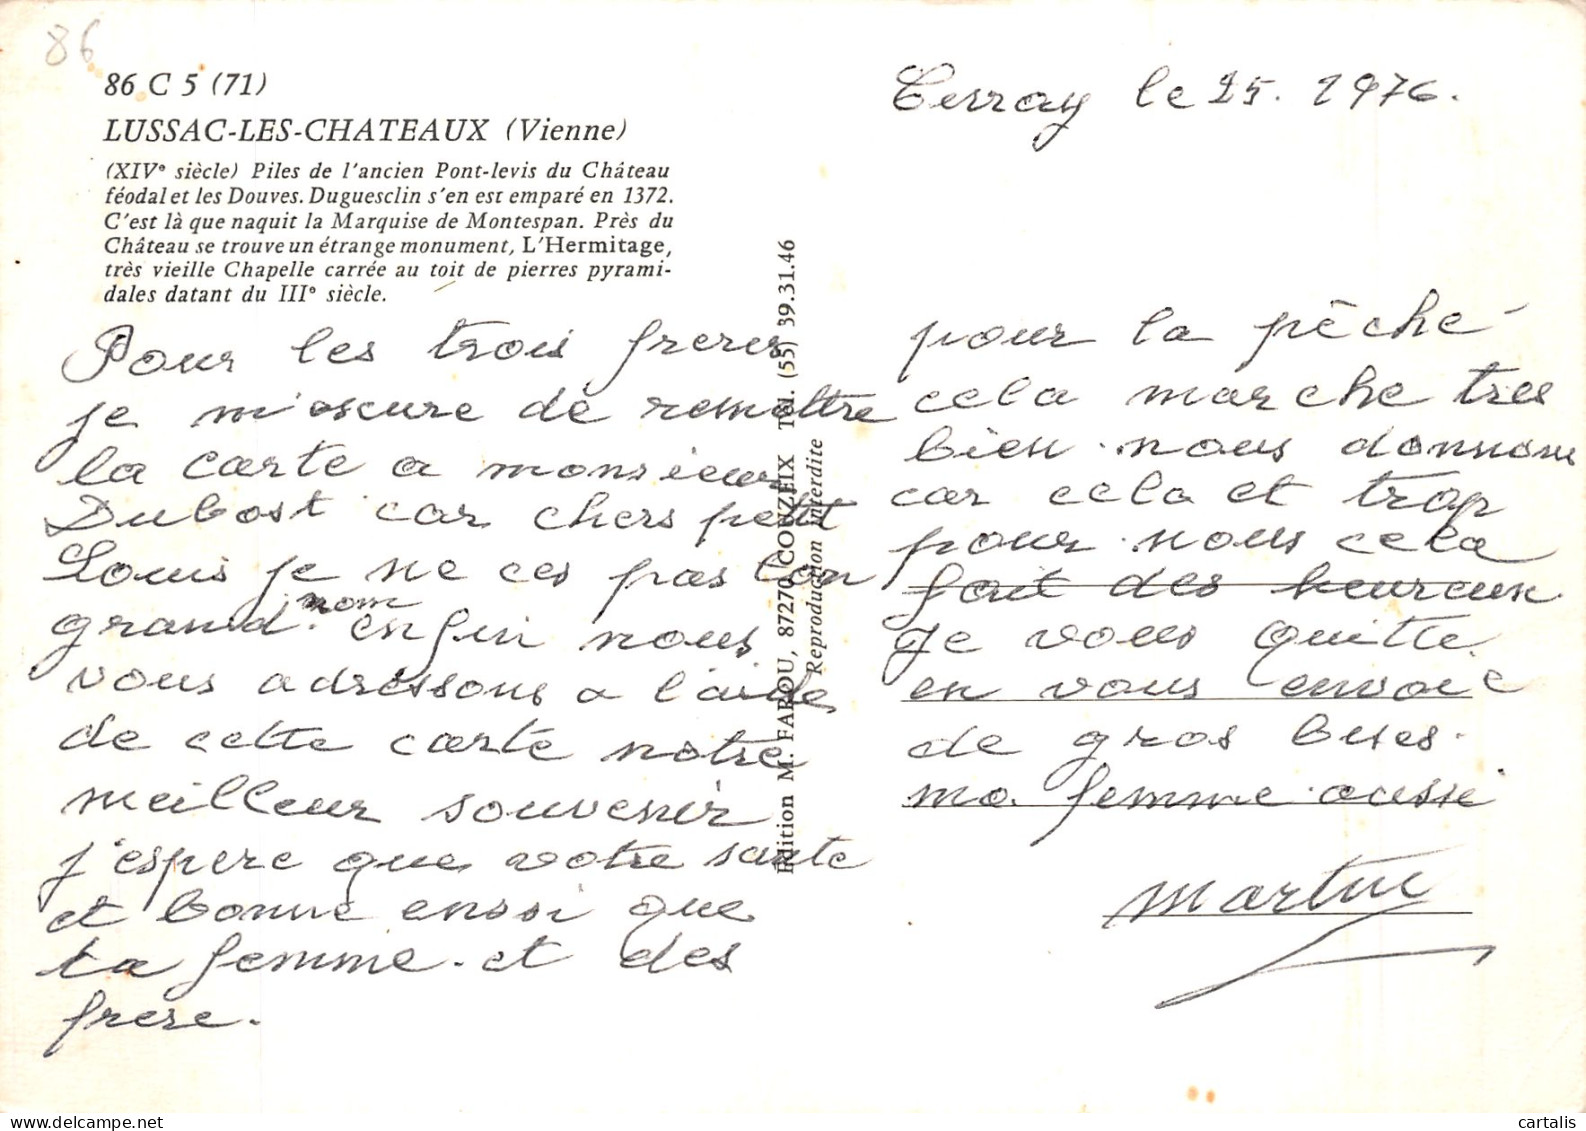 86
86 C 5 (71)
LUSSAC-LES-CHATEAUX (Vienne)
(XIVe siècle) Piles de l'ancien Pont-levis du Château
féodal et les Douves. Duguesclin s'en est emparé en 1372.
C'est là que naquit la Marquise de Montespan. Près du
Château se trouve un étrange monument, L'Hermitage,
très vieille Chapelle carrée au toit de pierres pyrami-
dales datant du IIIe siècle.
Pour les trois freres
je m'ascure de remettre
la carte a monsieur
Dubost car chers petit
Louis je ne ces pas ton
grand nom enfin nous
vous adressons a l'aide
de cette carte notre
meilleur souvenir
j'espere que votre sante
et bonne enssi que
ta femme. et des
frere.
Edition M. FARJOU, 87270 COUZEIX Tél. (55) 39.31.46
Reproduction interdite
le 25. 1976.
pour la pêche
cela marche tres
bien. nous donnons
car cela et trop
pour nous cela
fait des heureux.
Je vous quitte.
en vous envoie
de gros bises.
ma femme aussi
cartalis